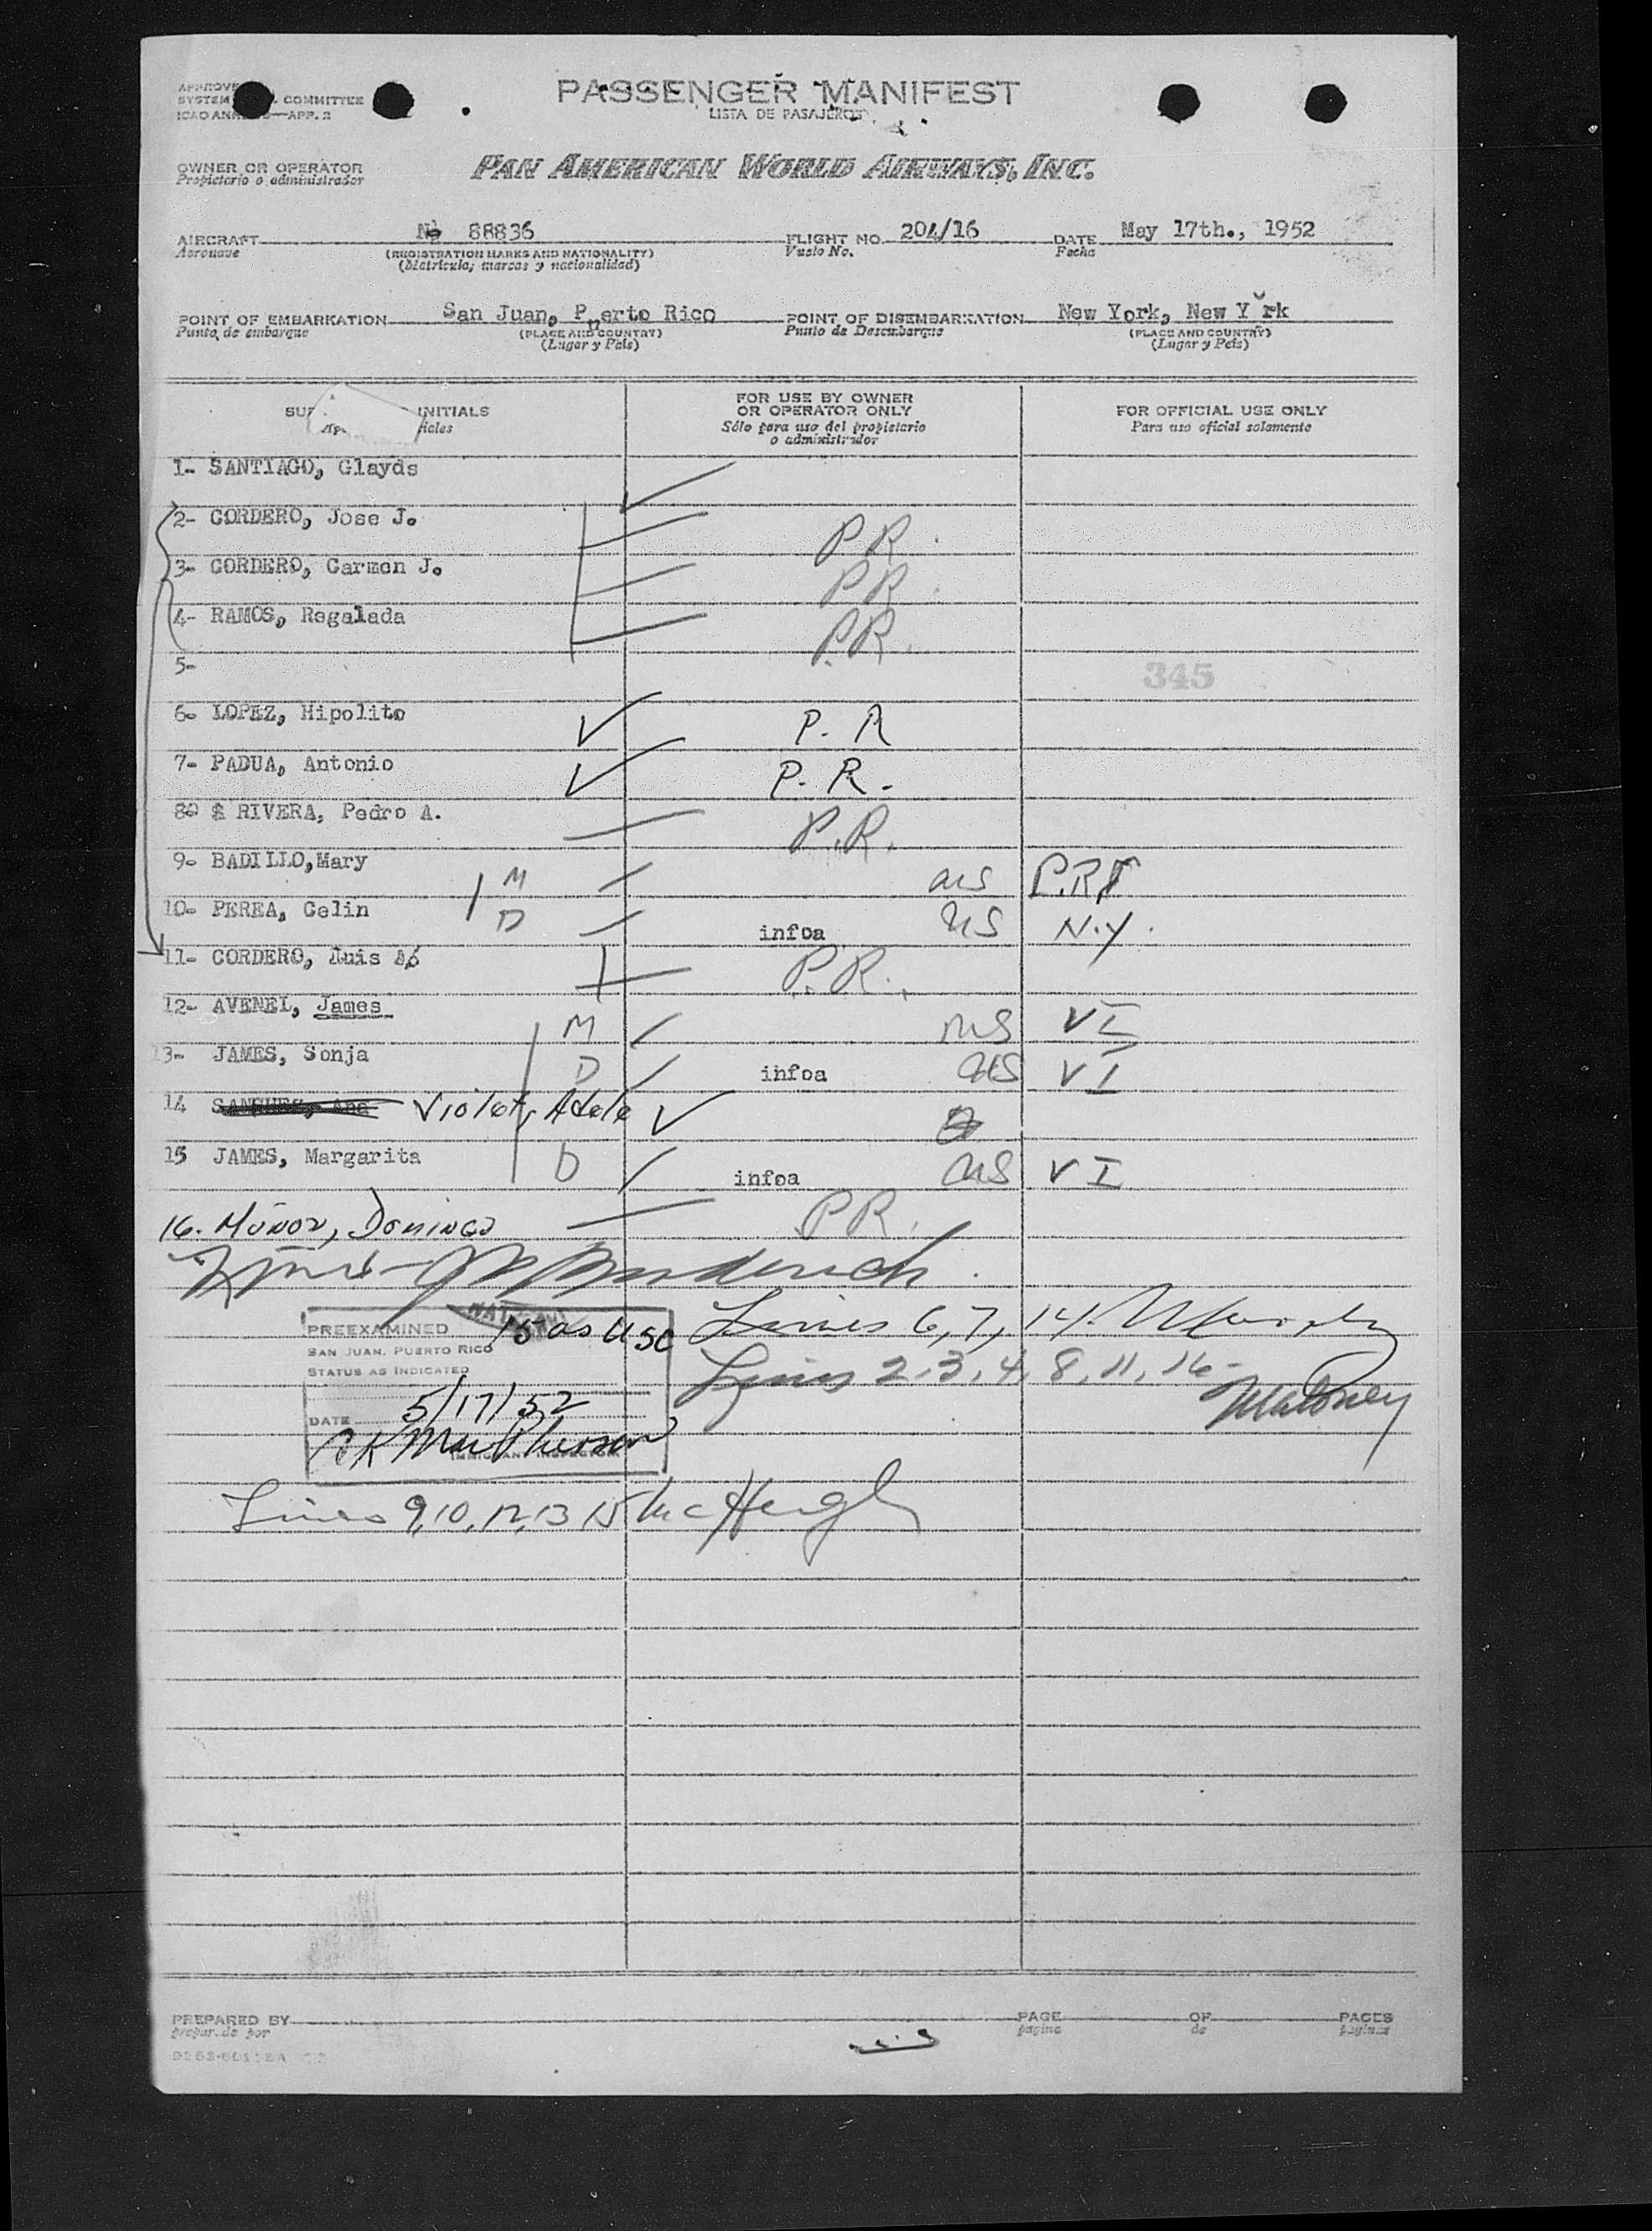 PASSENGER MANIFEST
SYSTEM COMMITTEE
LISTA DE PASAJEROS
OWNER OR OPERATOR
Propietario o administrador
PAN AMERICAN WORLD AIRWAYS, INC.
AIRCRAFT 88836 FLIGHT NO. 204/16 DATE May 17th., 1952
Aeronave (REGISTRATION MARKS AND NATIONALITY) Vuelo No. Fecha
(Matricula, marcas y nacionalidad)
POINT OF EMBARKATION San Juan, Puerto Rico POINT OF DISEMBARKATION New York, New York
Punto de embarque (PLACE AND COUNTRY) Punto de Desembarque (PLACE AND COUNTRY)
(Lugar y País) (Lugar y País)
INITIALS FOR USE BY OWNER OR OPERATOR ONLY FOR OFFICIAL USE ONLY
Sólo para uso del propietario o administrador Para uso oficial solamente
1- SANTIAGO, Glayds
2- CORDERO, Jose J. P.R.
3- CORDERO, Carmen J. P.R.
4- RAMOS, Regalada P.R.
5-
345
6- LOPEZ, Hipolito P. R
7- PADUA, Antonio P. R.
8 RIVERA, Pedro A. P.R.
9- BADILLO,Mary M US P.R.
10- PEREA, Celin D infoa US N.Y.
11- CORDERO, Luis A P.R.
12- AVENEL, James M US VI
13- JAMES, Sonja D infoa US VI
14 SANCHEZ, Ana Violet, Adele
15 JAMES, Margarita D infoa US VI
16. MUÑOZ, DOMINGO P.R.
PREEXAMINED 15 as USC Lines 6, 7, 14.
SAN JUAN, PUERTO RICO
STATUS AS INDICATED Lines 2, 3, 4, 8, 11, 16-
Maloney
DATE 5/17/52
IMMIGRANT INSPECTOR
Lines 9, 10, 12, 13 15
PREPARED BY PAGE OF PAGES
página de páginas